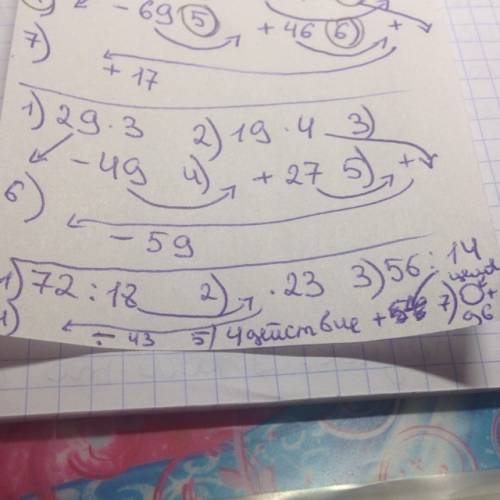 - 69 5) + 46 6) +
7)
+ 17
1) 29 · 3 2) 19 · 4 3)
- 49 4) + 27 5) +
6)
- 59
1) 72 : 18 2) · 23 3) 56 : 14
- 43 5) 4 действие + 7) +
96